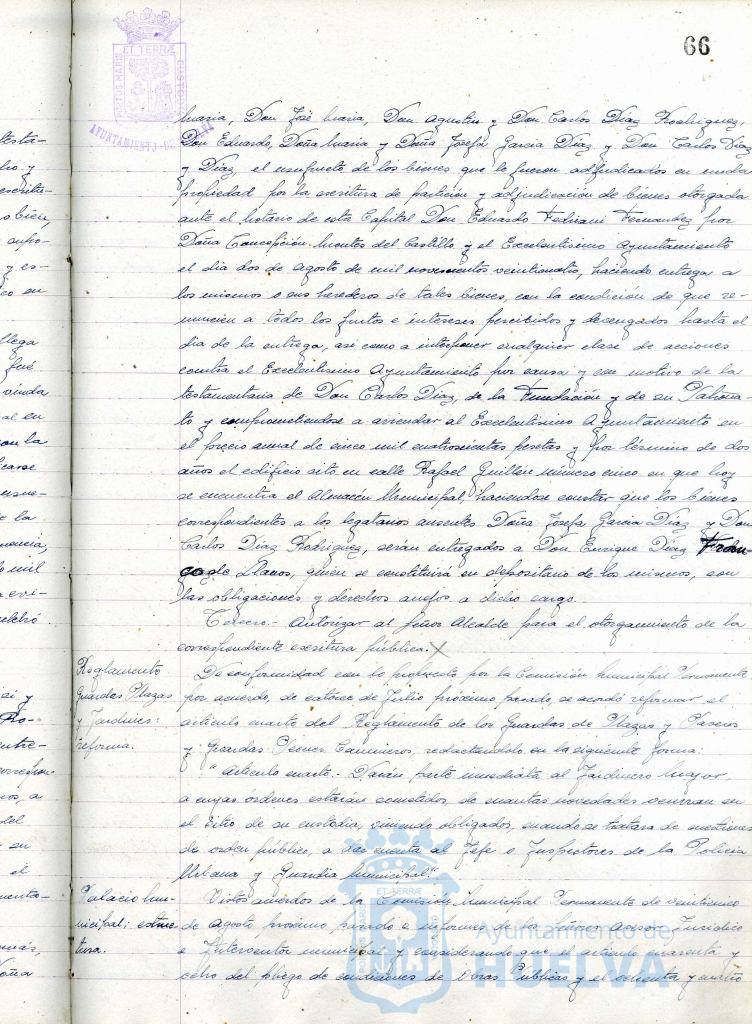 66
PORTUS MARIS ET TERRÆ CUSTODIA
AYUNTAMIENTO DE HUELVA
Maria, Don José Maria, Don Agustin y Don Carlos Diaz Rodriguez,
Don Eduardo, Doña Maria y Doña Josefa Garcia Diaz y Don Carlos Diaz
y Diaz, el usufructo de los bienes que le fueron adjudicados en nuda
propiedad por la escritura de partición y adjudicación de bienes otorgada
ante el notario de esta Capital Don Eduardo Fedriani Fernandez por
Doña Concepción Montes del Castillo y el Excelentisimo Ayuntamiento
el dia dos de Agosto de mil novecientos veinticuatro, haciendo entrega a
los mismos o sus herederos de tales bienes, con la condición de que re-
nuncien a todos los frutos e intereses percibidos y devengados hasta el
dia de la entrega, asi como a interponer cualquier clase de acciones
contra el Excelentisimo Ayuntamiento por causa y con motivo de la
testamentaria de Don Carlos Diaz, de la Fundación y de su Patrona-
to y comprometiendose a arrendar al Excelentisimo Ayuntamiento en
el precio anual de cinco mil cuatrocientas pesetas y por término de dos
años el edificio sito en calle Rafael Guillén número cinco en que hoy
se encuentra el Almacén Municipal, haciendose constar que los bienes
correspondientes a los legatarios ausentes Doña Josefa Garcia Diaz y Don
Carlos Diaz Rodriguez, serán entregados a Don Enrique Diaz Fran-
co de Llanos, quien se constituirá en depositario de los mismos, con
las obligaciones y derechos anejos a dicho cargo.
Tercero.- Autorizar al señor Alcalde para el otorgamiento de la
correspondiente escritura pública.
Reglamento
Guardas Plazas
y Jardines:
reforma.
De conformidad con lo propuesto por la Comisión Municipal Permanente
por acuerdo, de catorce de Julio próximo pasado, se acordó reformar, el
articulo cuarto del Reglamento de los Guardas de Plazas y Paseos
y Guardas Peones Camineros, redactandolo en la siguiente forma:
"Articulo cuarto.- Darán parte inmediata al Jardinero Mayor,
a cuyas órdenes estarán sometidos, de cuantas novedades ocurran en
el sitio de su custodia, viniendo obligados, cuando se tratara de cuestiones
de orden público, a dar cuenta al Jefe o Inspectores de la Policia
Urbana y Guardia Municipal."
Palacio mu-
nicipal: estruc-
tura.
Vistos acuerdos de la Comisión Municipal Permanente de veinticinco
de Agosto próximo pasado e informe de los señores Asesor Juridico
e Interventor municipal y considerando que el articulo cuarenta y
ocho del pliego de condiciones de Obras Públicas y el ochenta y cuatro
Ayuntamiento de
HUELVA